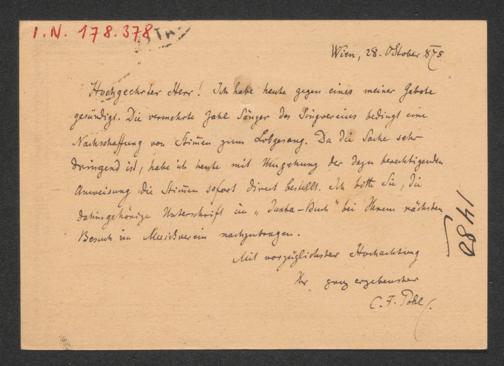 I.N. 178.378
Wien, 28. Oktober 875
Hochgeehrter Herr! Ich habe heute gegen eines meiner Gebote
gesündigt. Die vermehrte Zahl Sänger des Singvereines bedingt eine
Nachschaffung von Stimmen zum Lobgesang. Da die Sache sehr
dringend ist, habe ich heute mit Umgehung der dazu berechtigenden
Anweisung die Stimmen sofort direct bestellt. Ich bitte Sie, die
dahingehörige Unterschrift im „Juxta-Buch" bei Ihrem nächsten
Besuch im Musikverein nachzutragen.
Mit vorzüglichster Hochachtung
Ihr ganz ergebenster
C. F. Pohl